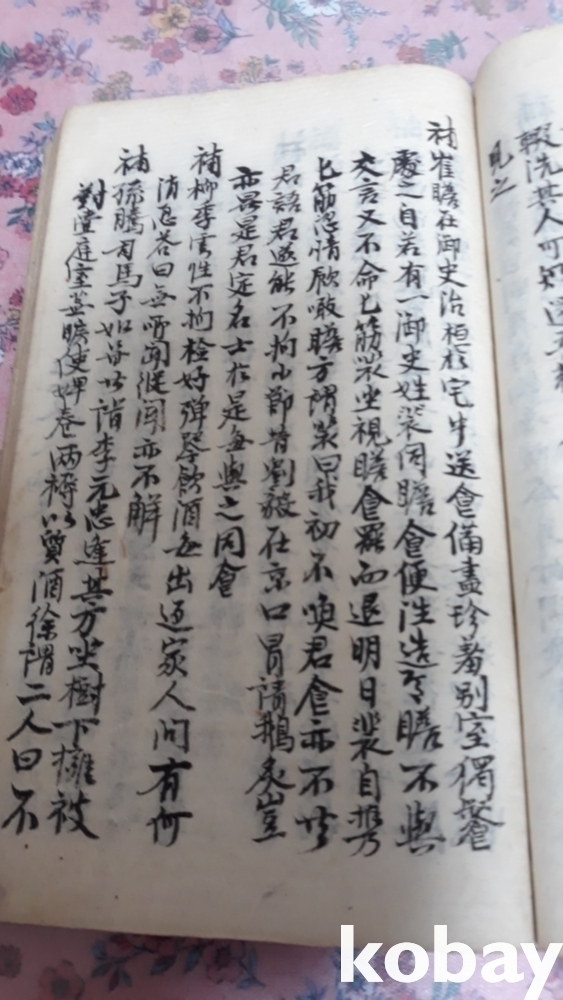 輟洗其人可知
見之
補崔瞻在御史治恒於宅中送食備盡珍羞別室獨飡
處之自若有一御史姓裴伺瞻食便往造焉瞻不與
交言又不命匕筯裴坐視瞻食罷而退明日裴自携
匕筯恣情飮噉瞻方謂裴曰我初不喚君食亦不共
君語君遂能不拘小節昔劉毅在京口冒請鵝炙豈
亦異是君定名士於是每與之同食
補柳季雲性不拘檢好彈琴飮酒每出返家人問有何
消息答曰無所聞縱聞亦不解
補孫騰司馬子如嘗共詣李元忠逢其方坐樹下擁被
對壺庭室蓋曠使婢卷兩褥以質酒徐謂二人曰不
kobay